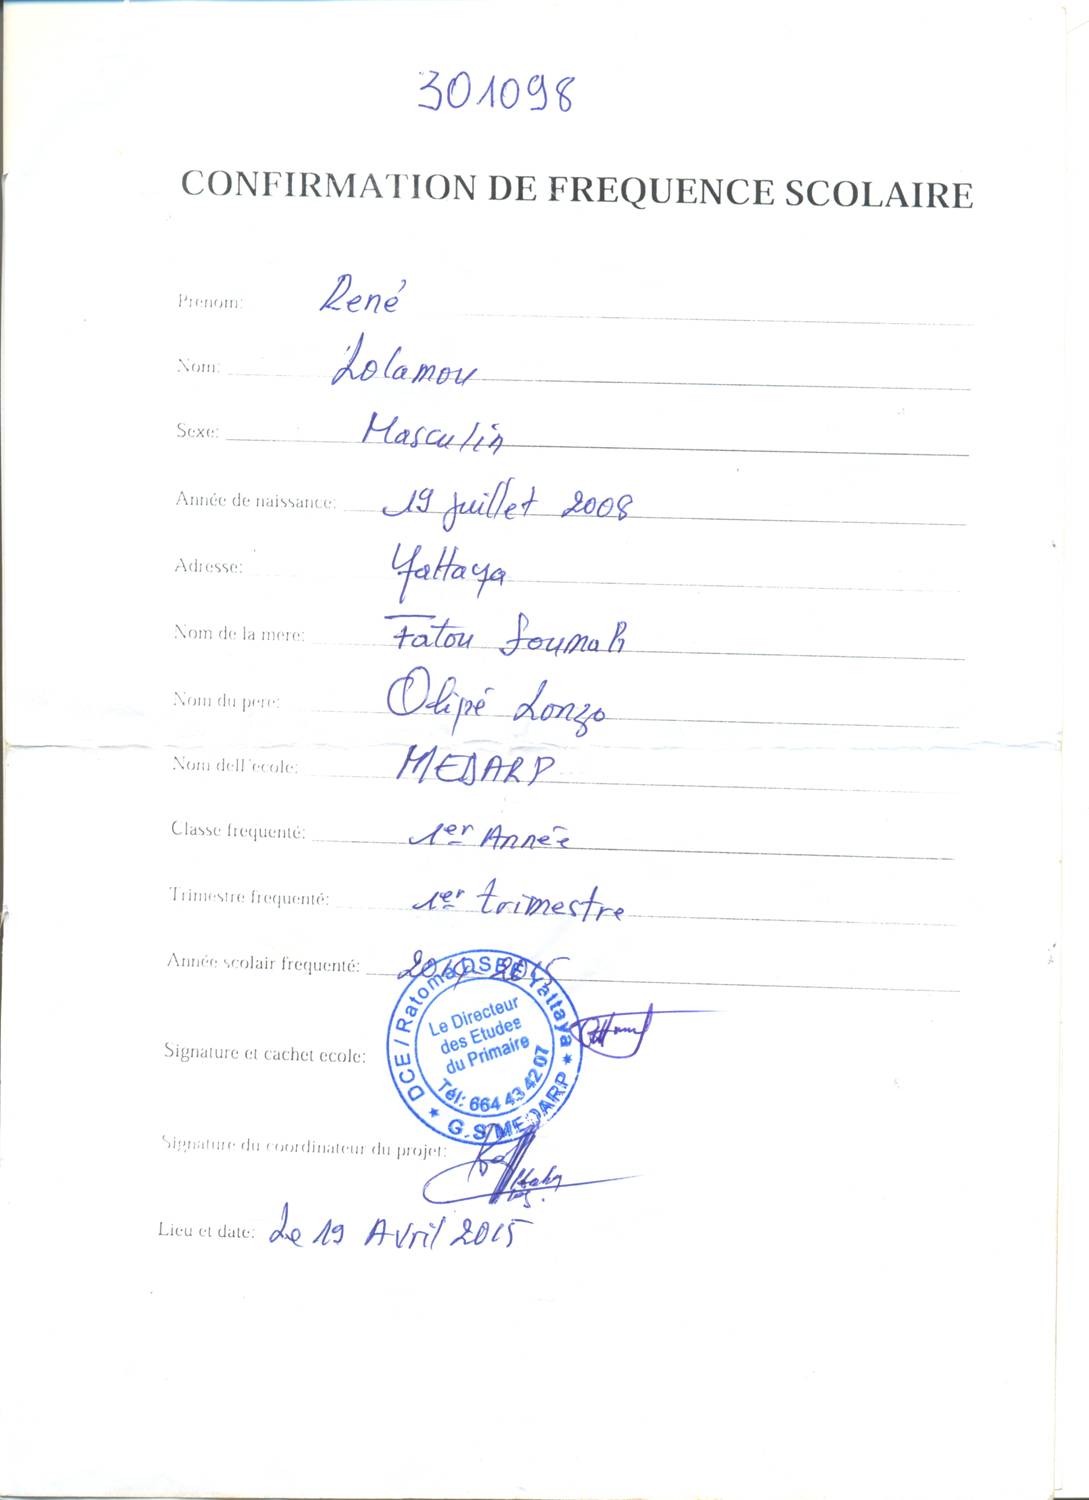 301098
CONFIRMATION DE FREQUENCE SCOLAIRE
Prenom: René
Nom: Lolamou
Sexe: Masculin
Année de naissance: 19 juillet 2008
Adresse: Yattaya
Nom de la mere: Fatou Soumah
Nom du pere: Olipé Lonzo
Nom dell'ecole: MEDARP
Classe frequenté: 1er Année
Trimestre frequenté: 1er trimestre
Année scolair frequenté: 2014 2015
DCE / Ratoma DSEE Yattaya
Le Directeur
des Etudes
du Primaire
Tél: 664 43 42 07
G.S MEDARP
Signature et cachet ecole:
Signature du coordinateur du projet:
Lieu et date: Le 19 Avril 2015